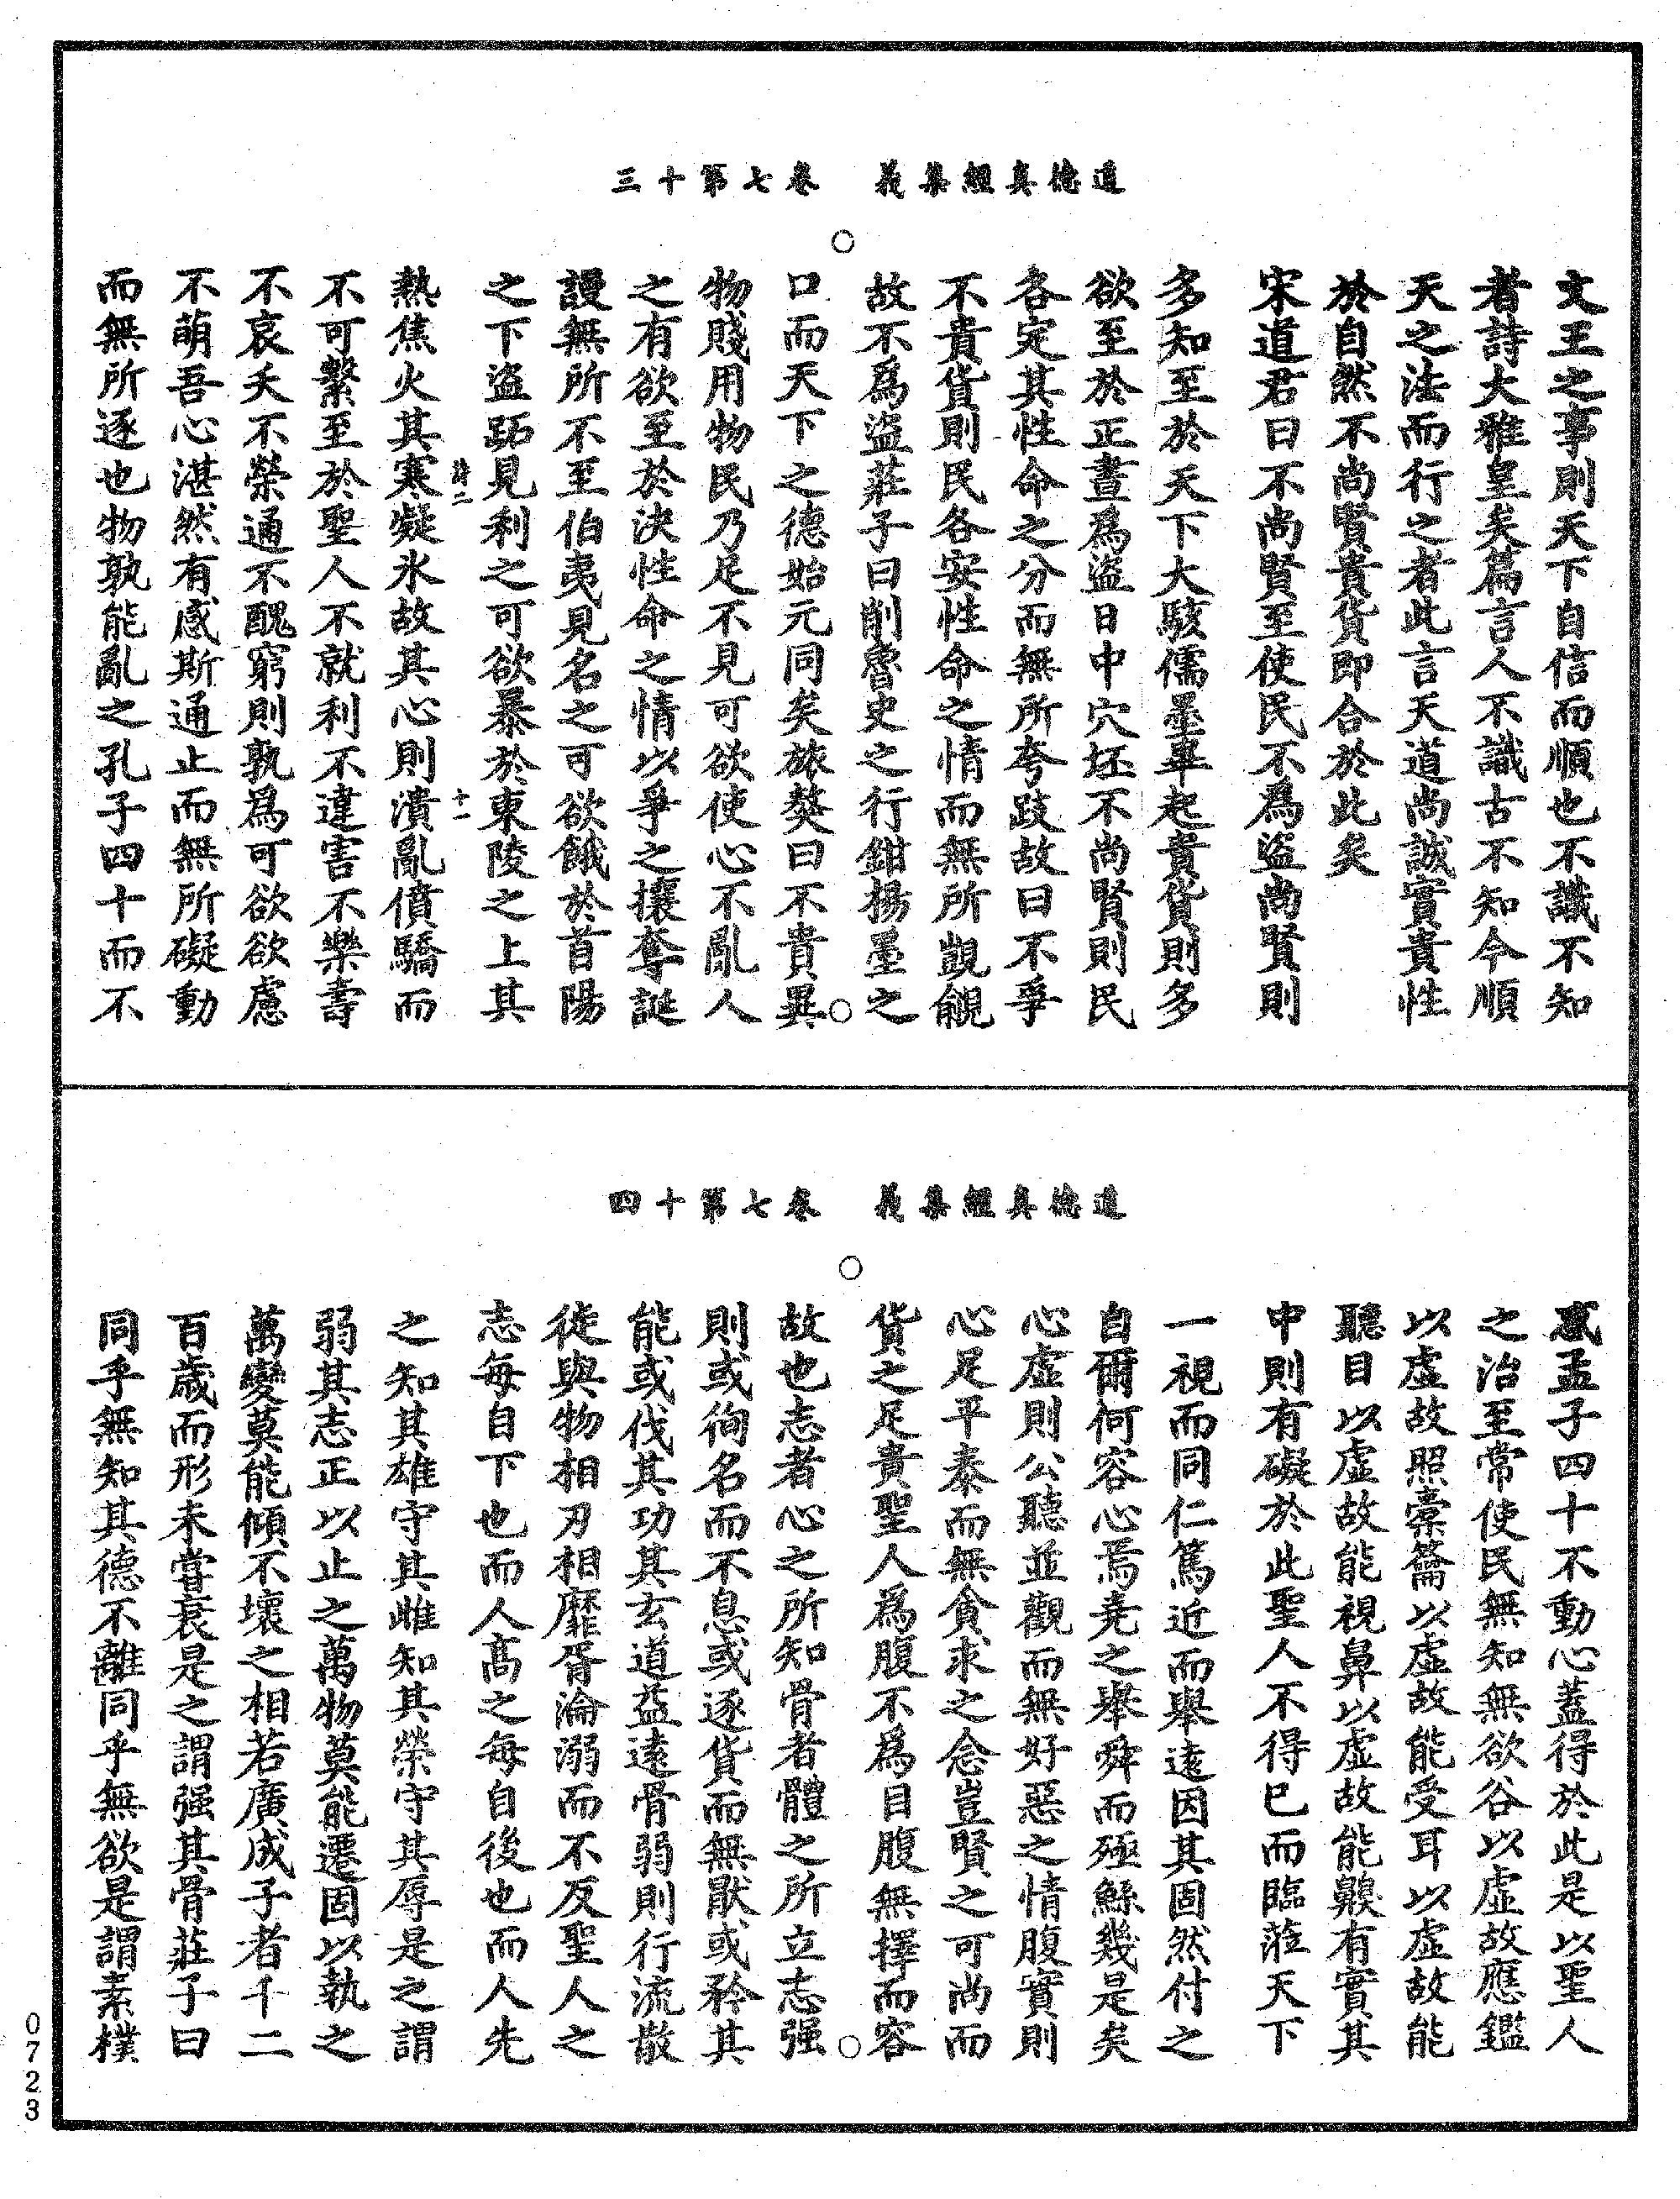 道德真經集義　卷七第十三
文王之事則天下自信而順也不識不知
者詩大雅皇矣篇言人不識古不知今順
天之法而行之者此言天道尚誠實貴性
於自然不尚賢貴貨即合於此矣
宋道君曰不尚賢至使民不為盜尚賢則
多知至於天下大駭儒墨畢起貴貨則多
欲至於正晝爲盜日中穴坯不尚賢則民
各定其性命之分而無所夸跂故曰不爭
不貴貨則民各安性命之情而無所覬覦
故不爲盜莊子曰削魯史之行鉗揚墨之
口而天下之德始元同矣旅獒曰不貴異
物賤用物民乃足不見可欲使心不亂人
之有欲至於決性命之情以爭之攘奪誕
謾無所不至伯夷見名之可欲餓於首陽
之下盜跖見利之可欲暴於東陵之上其
熱焦火其寒凝氷故其心則潰亂僨驕而
不可繫至於聖人不就利不違害不樂壽
不哀夭不榮通不醜窮則孰爲可欲欲慮
不萌吾心湛然有感斯通止而無所礙動
而無所逐也物孰能亂之孔子四十而不
道德真經集義　卷七第十四
惑孟子四十不動心蓋得於此是以聖人
之治至常使民無知無欲谷以虛故應鑑
以虛故照橐籥以虛故能受耳以虛故能
聽目以虛故能視鼻以虛故能齅有實其
中則有礙於此聖人不得已而臨蒞天下
一視而同仁篤近而舉遠因其固然付之
自爾何容心焉堯之舉舜而殛鯀幾是矣
心虛則公聽並觀而無好惡之情腹實則
心足平泰而無貪求之念豈賢之可尚而
貨之足貴聖人為腹不為目腹無擇而容
故也志者心之所知骨者體之所立志强
則或徇名而不息或逐貨而無猒或矜其
能或伐其功其玄道益遠骨弱則行流散
徙與物相刃相靡胥淪溺而不反聖人之
志每自下也而人高之每自後也而人先
之知其雄守其雌知其榮守其辱是之謂
弱其志正以止之萬物莫能遷固以執之
萬變莫能傾不壞之相若廣成子者千二
百歲而形未嘗衰是之謂强其骨莊子曰
同乎無知其德不離同乎無欲是謂素樸
0723